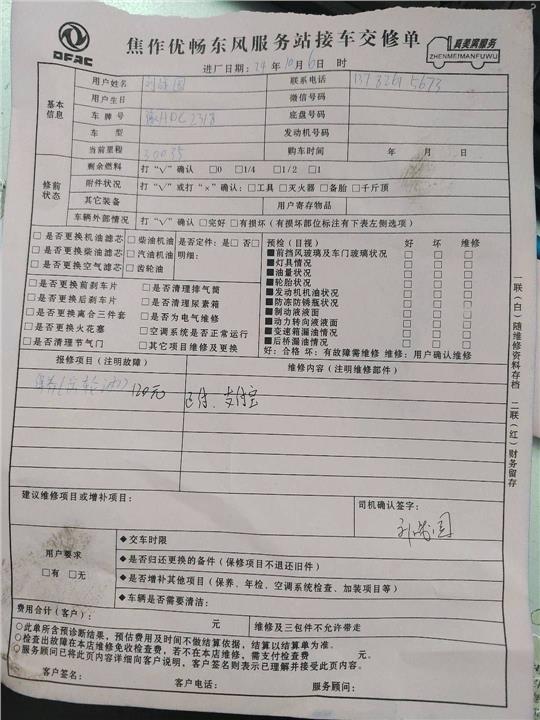 DFAC
焦作优畅东风服务站接车交修单
真美满服务
ZHENMEIMANFUWU
进厂日期：24年10月6日 时
基本信息
用户姓名 联系电话
用户生日 微信号码
车牌号 豫HDC2318 底盘号码
车型 发动机号码
当前里程 30035 购车时间 年 月 日
修前状态
剩余燃料 打“√”确认 □0 □1/4 □1/2 □1
附件状况 打“√”或打“×”确认：□工具 □灭火器 □备胎 □千斤顶
其它装备 用户寄存物品
车辆外部情况 打“√”确认 □完好 □有损坏（有损坏部位标注有下表左侧选项）
□是否更换机油滤芯 □柴油机油 是否定件：是□否□
□是否更换柴油滤芯 □汽油机油 明细：
□是否更换空气滤芯 □齿轮油
□是否更换前刹车片 □是否清理排气筒
□是否更换后刹车片 □是否清理尿素箱
□是否更换离合三件套 □是否为电气维修
□是否更换火花塞 □空调系统是否正常运行
□是否清理节气门 □其它项目维修及更换
预检（目视） 好 坏 维修
■前挡风玻璃及车门玻璃状况 □ □ □
■灯具情况 □ □ □
■油量状况 □ □ □
■轮胎状况 □ □ □
■发动机机油状况 □ □ □
■防冻防锈瓶状况 □ □ □
■制动液液面 □ □ □
■动力转向液液面 □ □ □
■变速箱漏油情况 □ □ □
■后桥漏油情况 □ □ □
好：合格 坏：有故障需维修 维修：用户确认维修
报修项目（注明故障） 维修内容（注明维修部件）
120元 已付、支付宝
建议维修项目或增补项目： 司机确认签字：
用户要求
□有 □无
◆交车时限
◆是否归还更换的备件（保修项目不退还旧件）
◆是否增补其他项目（保养、年检、空调系统检查、加装项目等）
◆车辆是否需要清洁：
费用合计（客户）： 元 维修及三包件不允许带走
○此单所含预诊断结果，预估费用及时间不做结算依据，结算以结算单为准。
○检查出故障在本店维修免收检查费，若不在本店维修，需支付检查费 元。
○服务顾问已将此页内容详细向客户说明，客户签名则表示已理解并接受此页内容。
客户签名： 客户电话： 服务顾问：
一联（白）随维修资料存档 二联（红）财务留存